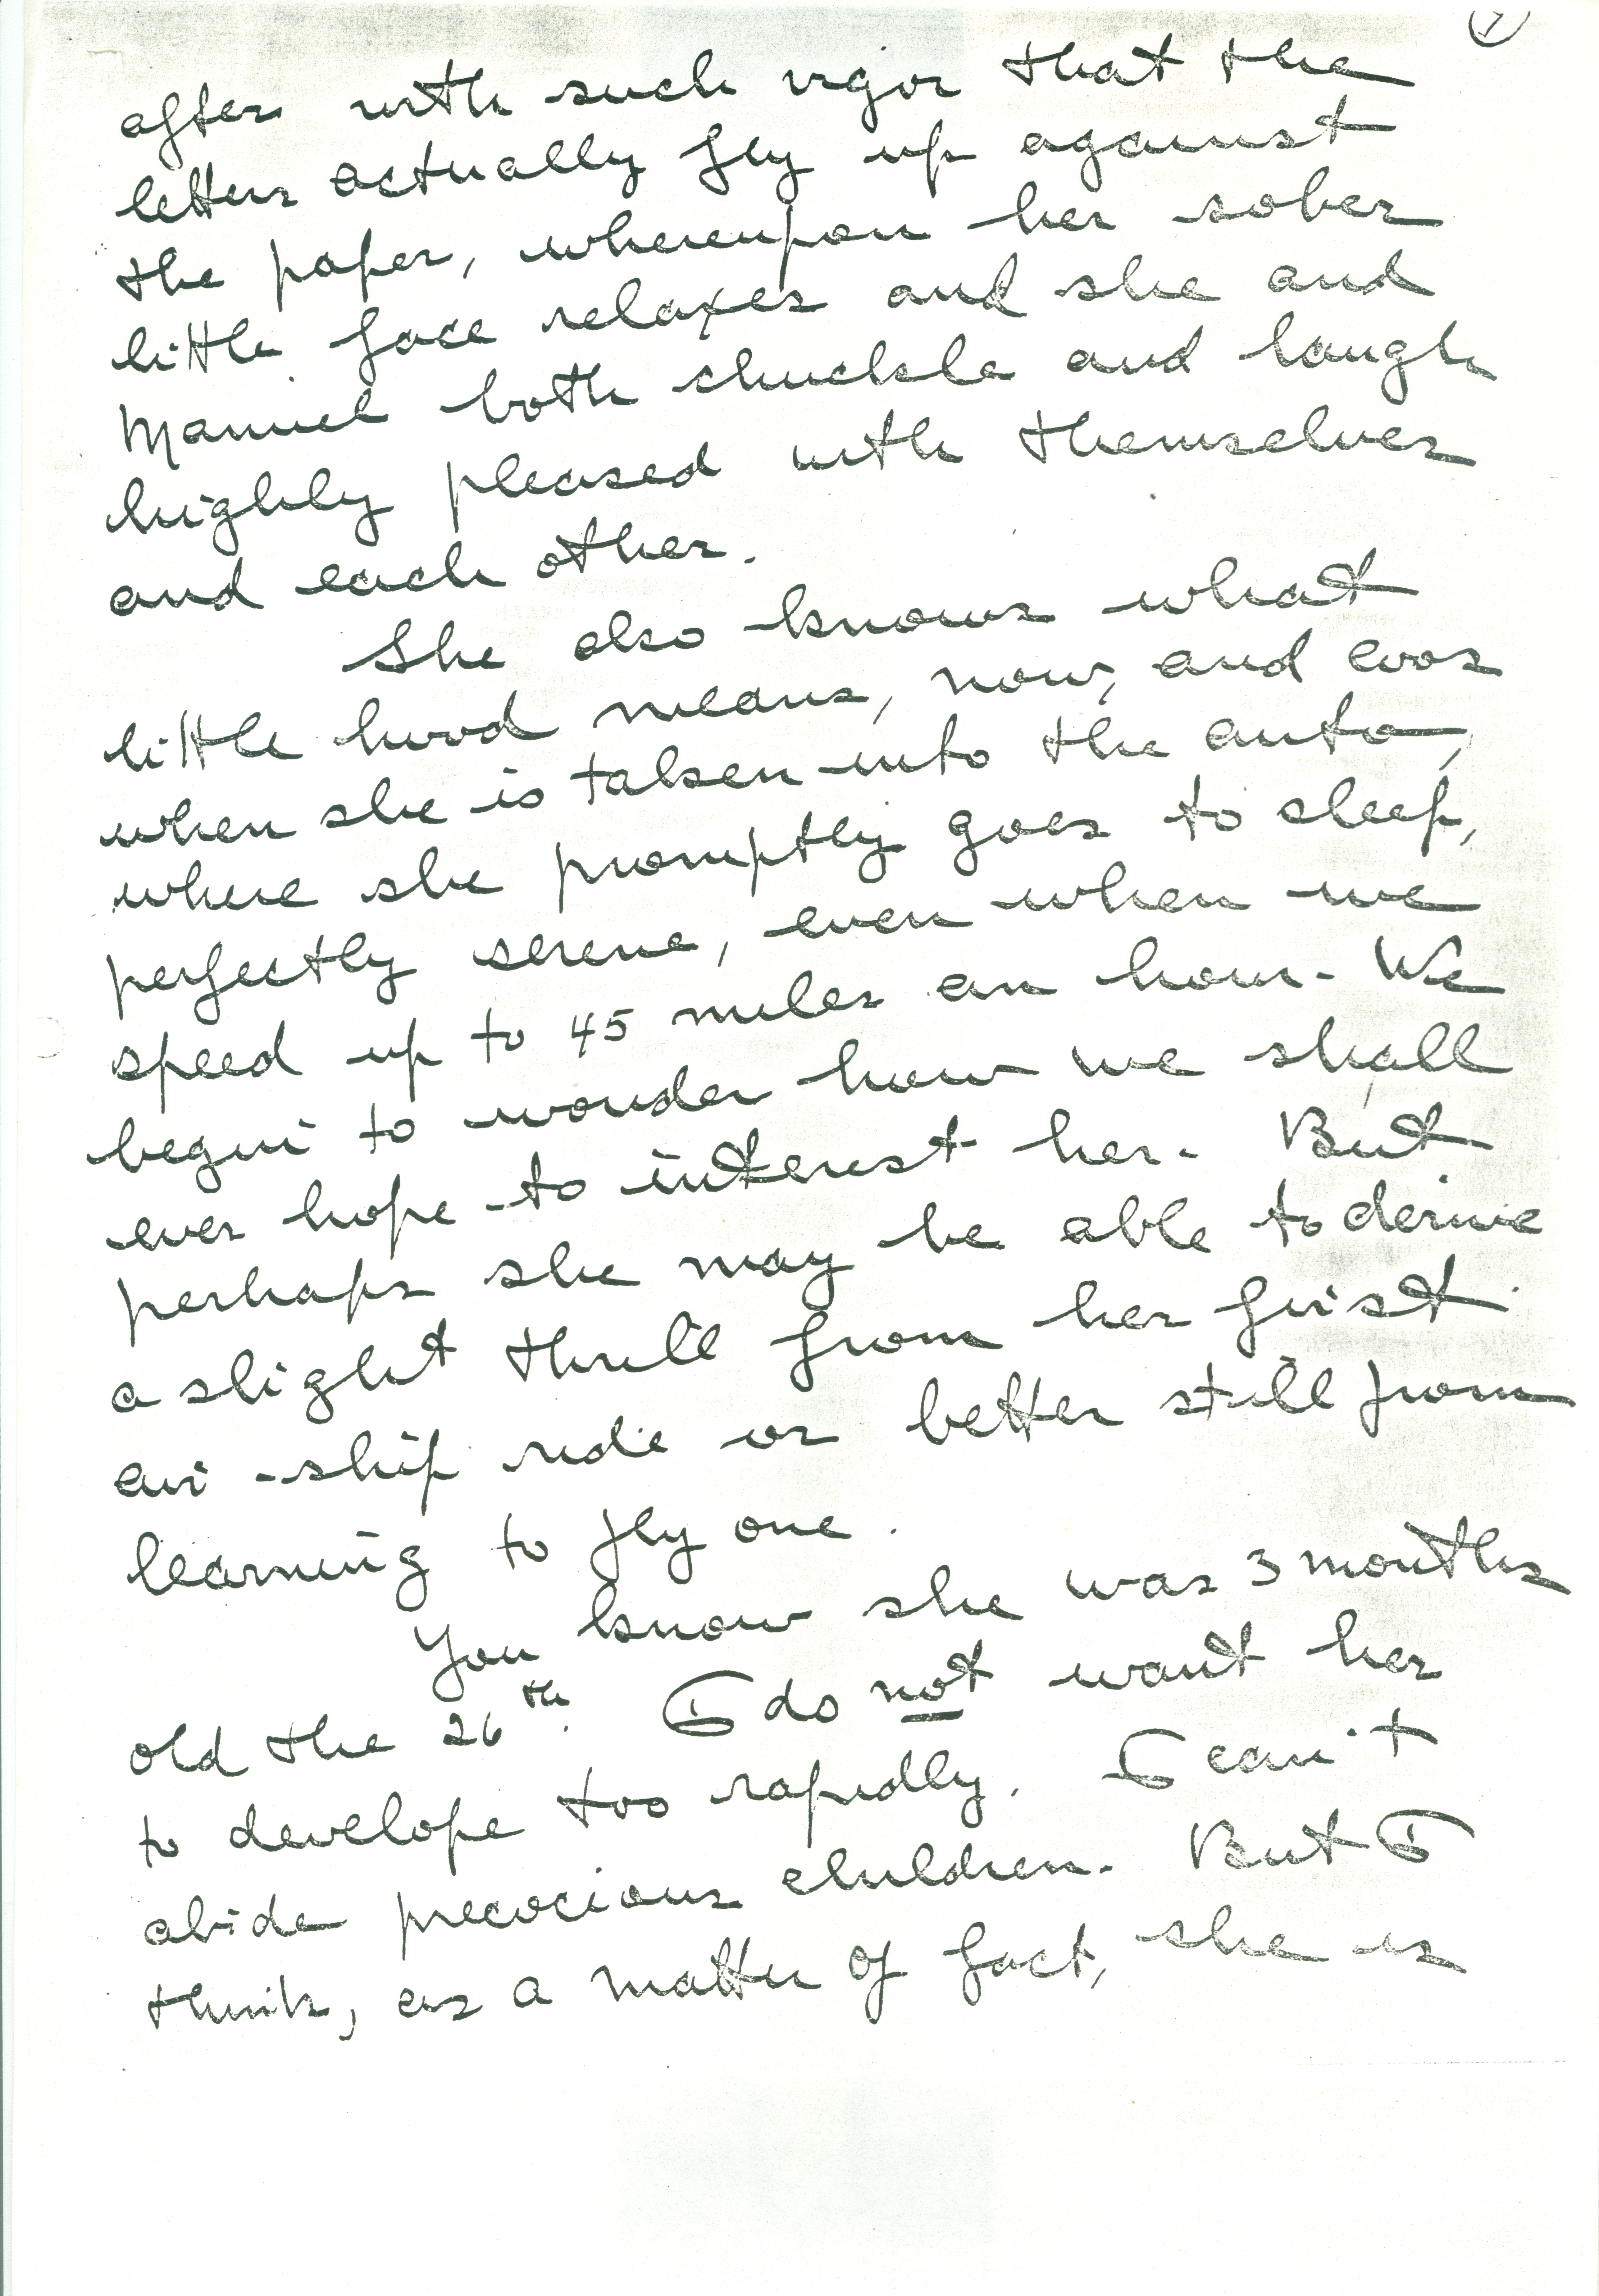 after with such vigor that the
letters actually fly up against
the paper, whereupon her sober
little face relaxes and she and
Manuel both chuckle and laugh
highly pleased with themselves
and each other.
She also knows what
little hood means, now, and coos
when she is taken into the auto,
where she promptly goes to sleep,
perfectly serene, even when we
speed up to 45 miles an hour. We
begin to wonder how we shall
ever hope to interest her. But
perhaps she may be able to derive
a slight thrill from her first
air-ship ride or better still from
learning to fly one.
You know she was 3 months
old the 26th. I do not want her
to develope too rapidly. I can't
abide precocious children. But I
think, as a matter of fact, she is